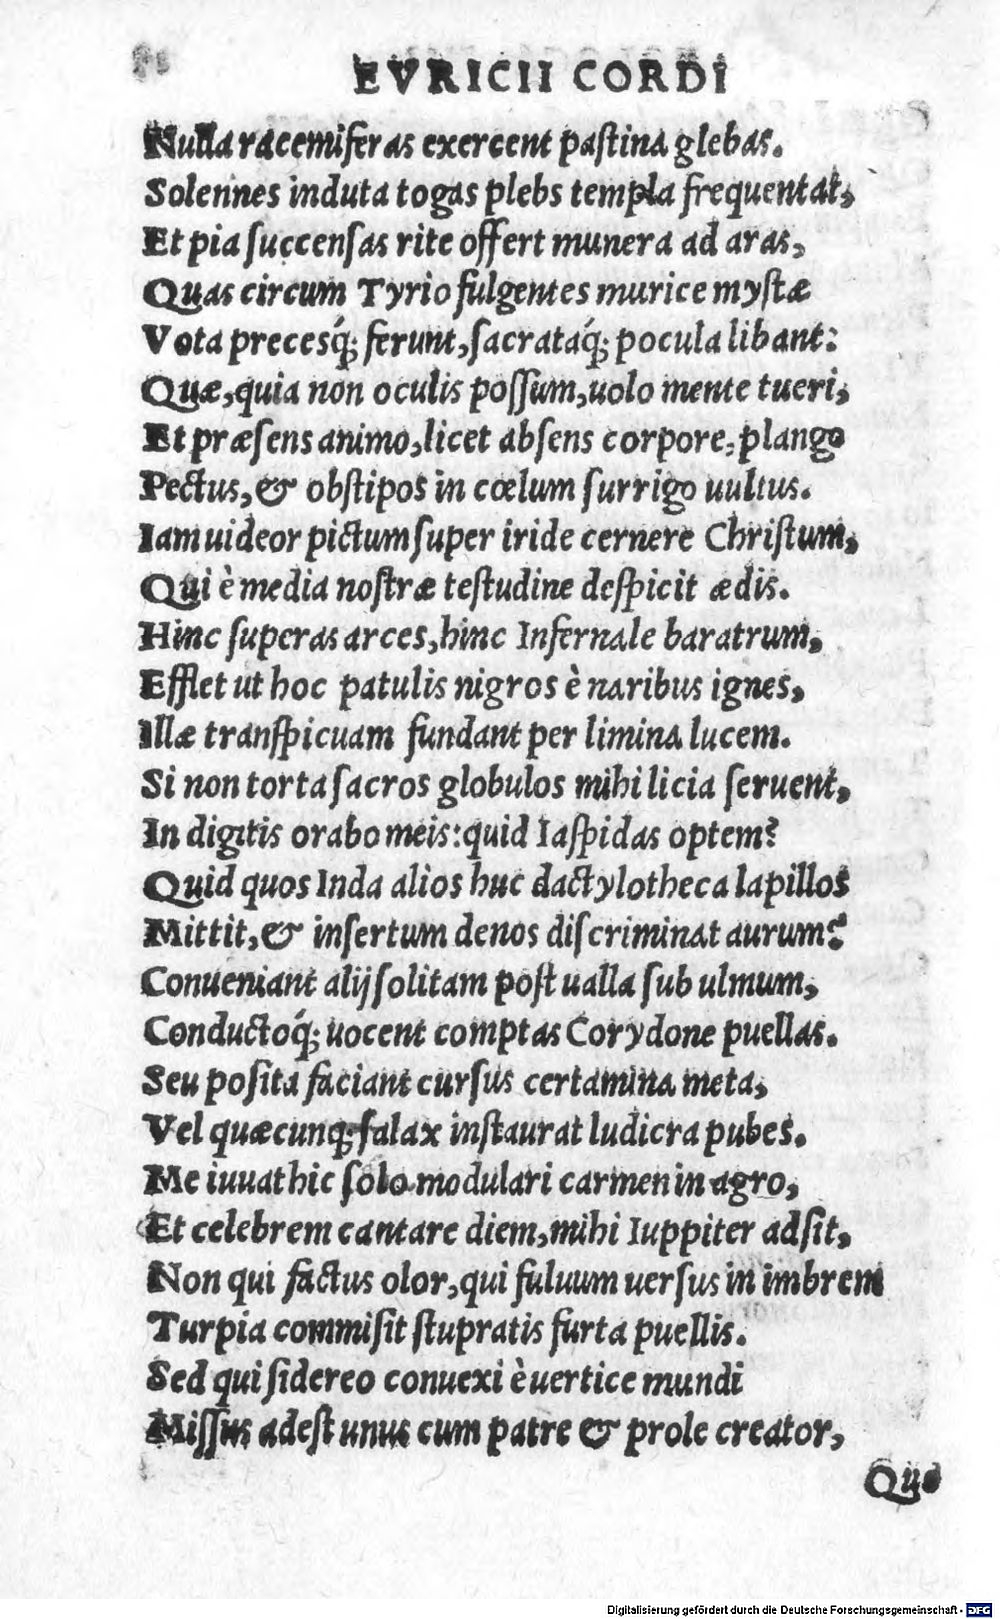 EVRICII CORDI
Nulla racemiferas exercent paſtina glebas.
Solennes induta togas plebs templa frequentat,
Et pia ſuccenſas rite offert munera ad aras,
Quas circum Tyrio fulgentes murice myſtæ
Vota precesq́; ferunt, ſacrataq́; pocula libant:
Quæ, quia non oculis poſſum, uolo mente tueri,
Et præſens animo, licet abſens corpore, plango
Pectus, & obſtipos in cœlum ſurrigo uultus.
Iam uideor pictum ſuper iride cernere Chriſtum,
Qui è media noſtræ teſtudine deſpicit ædis.
Hinc ſuperas arces, hinc Infernale baratrum,
Efflet ut hoc patulis nigros è naribus ignes,
Illæ tranſpicuam fundant per limina lucem.
Si non torta ſacros globulos mihi licia ſeruent,
In digitis orabo meis: quid Iaſpidas optem?
Quid quos Inda alios huc dactylotheca lapillos
Mittit, & inſertum denos diſcriminat aurum?
Conueniant alij ſolitam poſt ualla ſub ulmum,
Conductoq́; uocent comptas Corydone puellas.
Seu poſita faciant curſus certamina meta,
Vel quæcunq; ſalax inſtaurat ludicra pubes.
Me iuuat hic ſolo modulari carmen in agro,
Et celebrem cantare diem, mihi Iuppiter adſit,
Non qui factus olor, qui fuluum uerſus in imbrem
Turpia commiſit ſtupratis furta puellis.
Sed qui ſidereo conuexi è uertice mundi
Miſſus adeſt unus cum patre & prole creator,
Qui
Digitalisierung gefördert durch die Deutsche Forschungsgemeinschaft - DFG